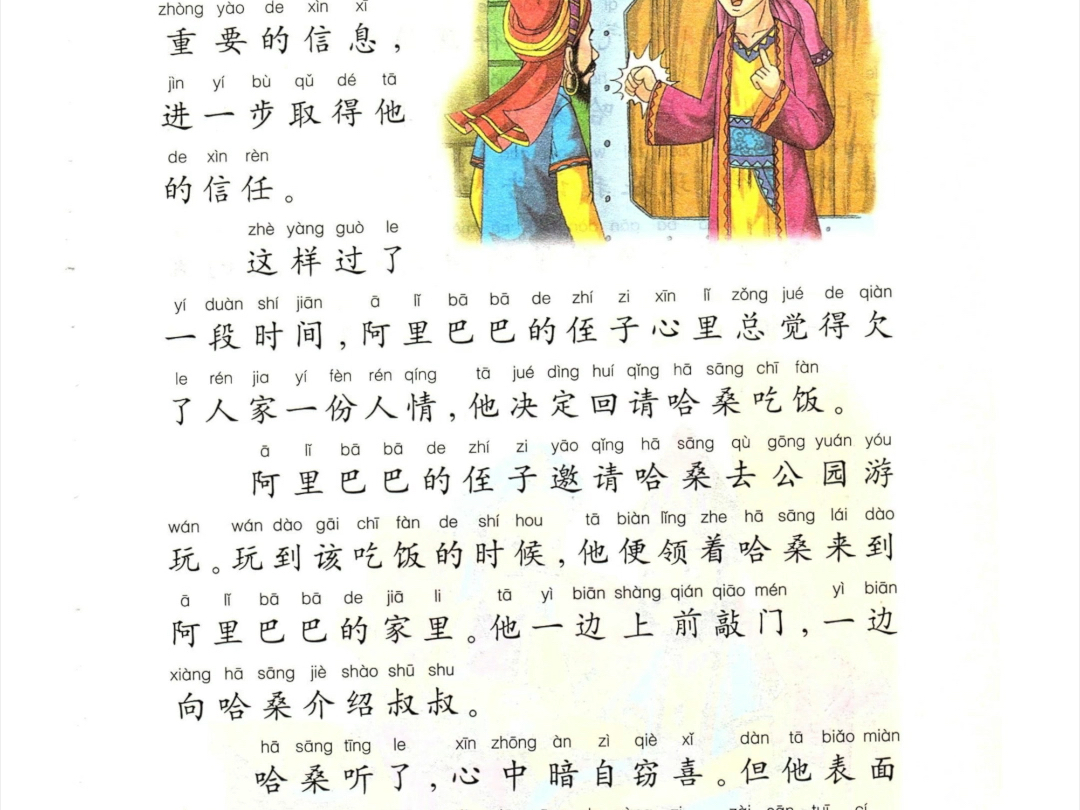 zhòng yào de xìn xī
重要的信息，
jìn yí bù qǔ dé tā
进一步取得他
de xìn rèn
的信任。
zhè yàng guò le
这样过了
yí duàn shí jiān ā lǐ bā bā de zhí zi xīn lǐ zǒng jué de qiàn
一段时间，阿里巴巴的侄子心里总觉得欠
le rén jia yí fèn rén qíng tā jué dìng huí qǐng hā sāng chī fàn
了人家一份人情，他决定回请哈桑吃饭。
ā lǐ bā bā de zhí zi yāo qǐng hā sāng qù gōng yuán yóu
阿里巴巴的侄子邀请哈桑去公园游
wán wán dào gāi chī fàn de shí hou tā biàn lǐng zhe hā sāng lái dào
玩。玩到该吃饭的时候，他便领着哈桑来到
ā lǐ bā bā de jiā li tā yì biān shàng qián qiāo mén yì biān
阿里巴巴的家里。他一边上前敲门，一边
xiàng hā sāng jiè shào shū shu
向哈桑介绍叔叔。
hā sāng tīng le xīn zhōng àn zì qiè xǐ dàn tā biǎo miàn
哈桑听了，心中暗自窃喜。但他表面